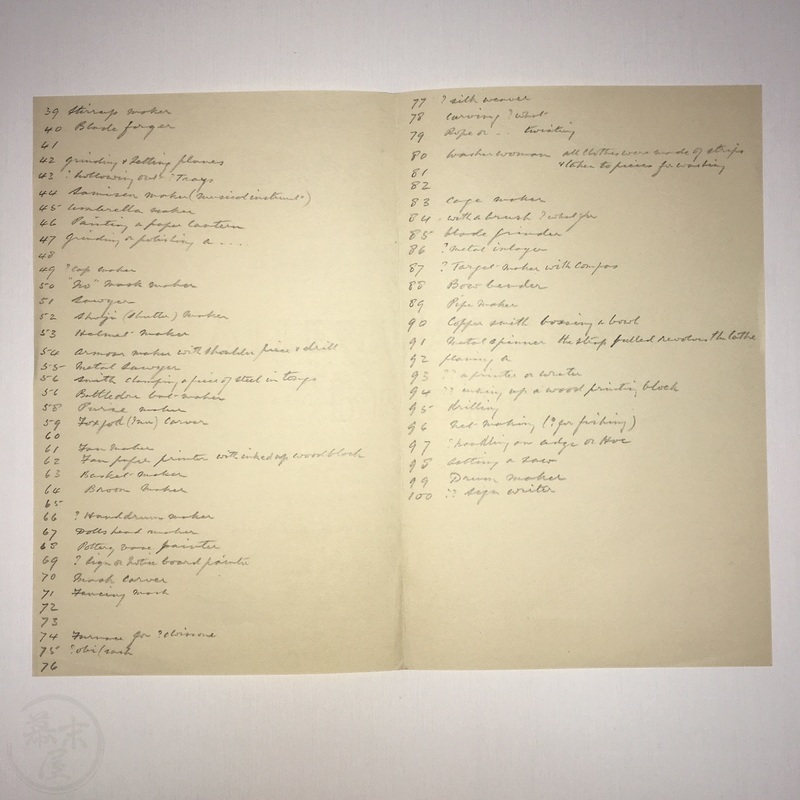 39 Stirrup maker
40 Blade forger
41
42 grinding & setting planes
43 ? hollowing out ? Trays
44 Samisen maker (musical instrument)
45 Umbrella maker
46 Painting a paper lantern
47 grinding or polishing a ....
48
49 ? cap maker
50 "No" mask maker
51 Sawyer
52 Shoji (shutter) maker
53 Helmet maker
54 Armour maker with shoulder piece & drill
55 Metal Sawyer
56 Smith clamping a piece of steel in tongs
56 Battledore bat maker
58 Purse maker
59 Foxgod (Inari) carver
60
61 Fan maker
62 Fan paper printer with inked up wood block
63 Basket maker
64 Broom maker
65
66 ? Hand drum maker
67 Dolls head maker
68 Pottery vase painter
69 ? Sign or notice board painter
70 Mask carver
71 Fencing mask
72
73
74 Furnace for ? cloisonne
75 ? obi/sash
76
77 ? silk weaver
78 Carving ? what
79 Rope or .. twisting
80 Washer woman all clothes were made of strips
81 & taken to pieces for washing
82
83 Cage maker
84 . with a brush ? what for
85 blade grinder
86 ? Metal inlayer
87 ? Target maker with compass
88 Bow bender
89 Pipe maker
90 Copper smith bossing a bowl
91 Metal spinner the strap pulled revolves the lathe
92 planing a
93 ?? a printer or writer
94 ?? inking up a wood printing block
95 drilling
96 Net making (? for fishing)
97 ? handling an adge or Hoe
98 Setting a saw
99 Drum maker
100 ?? Sign writer
幕末屋